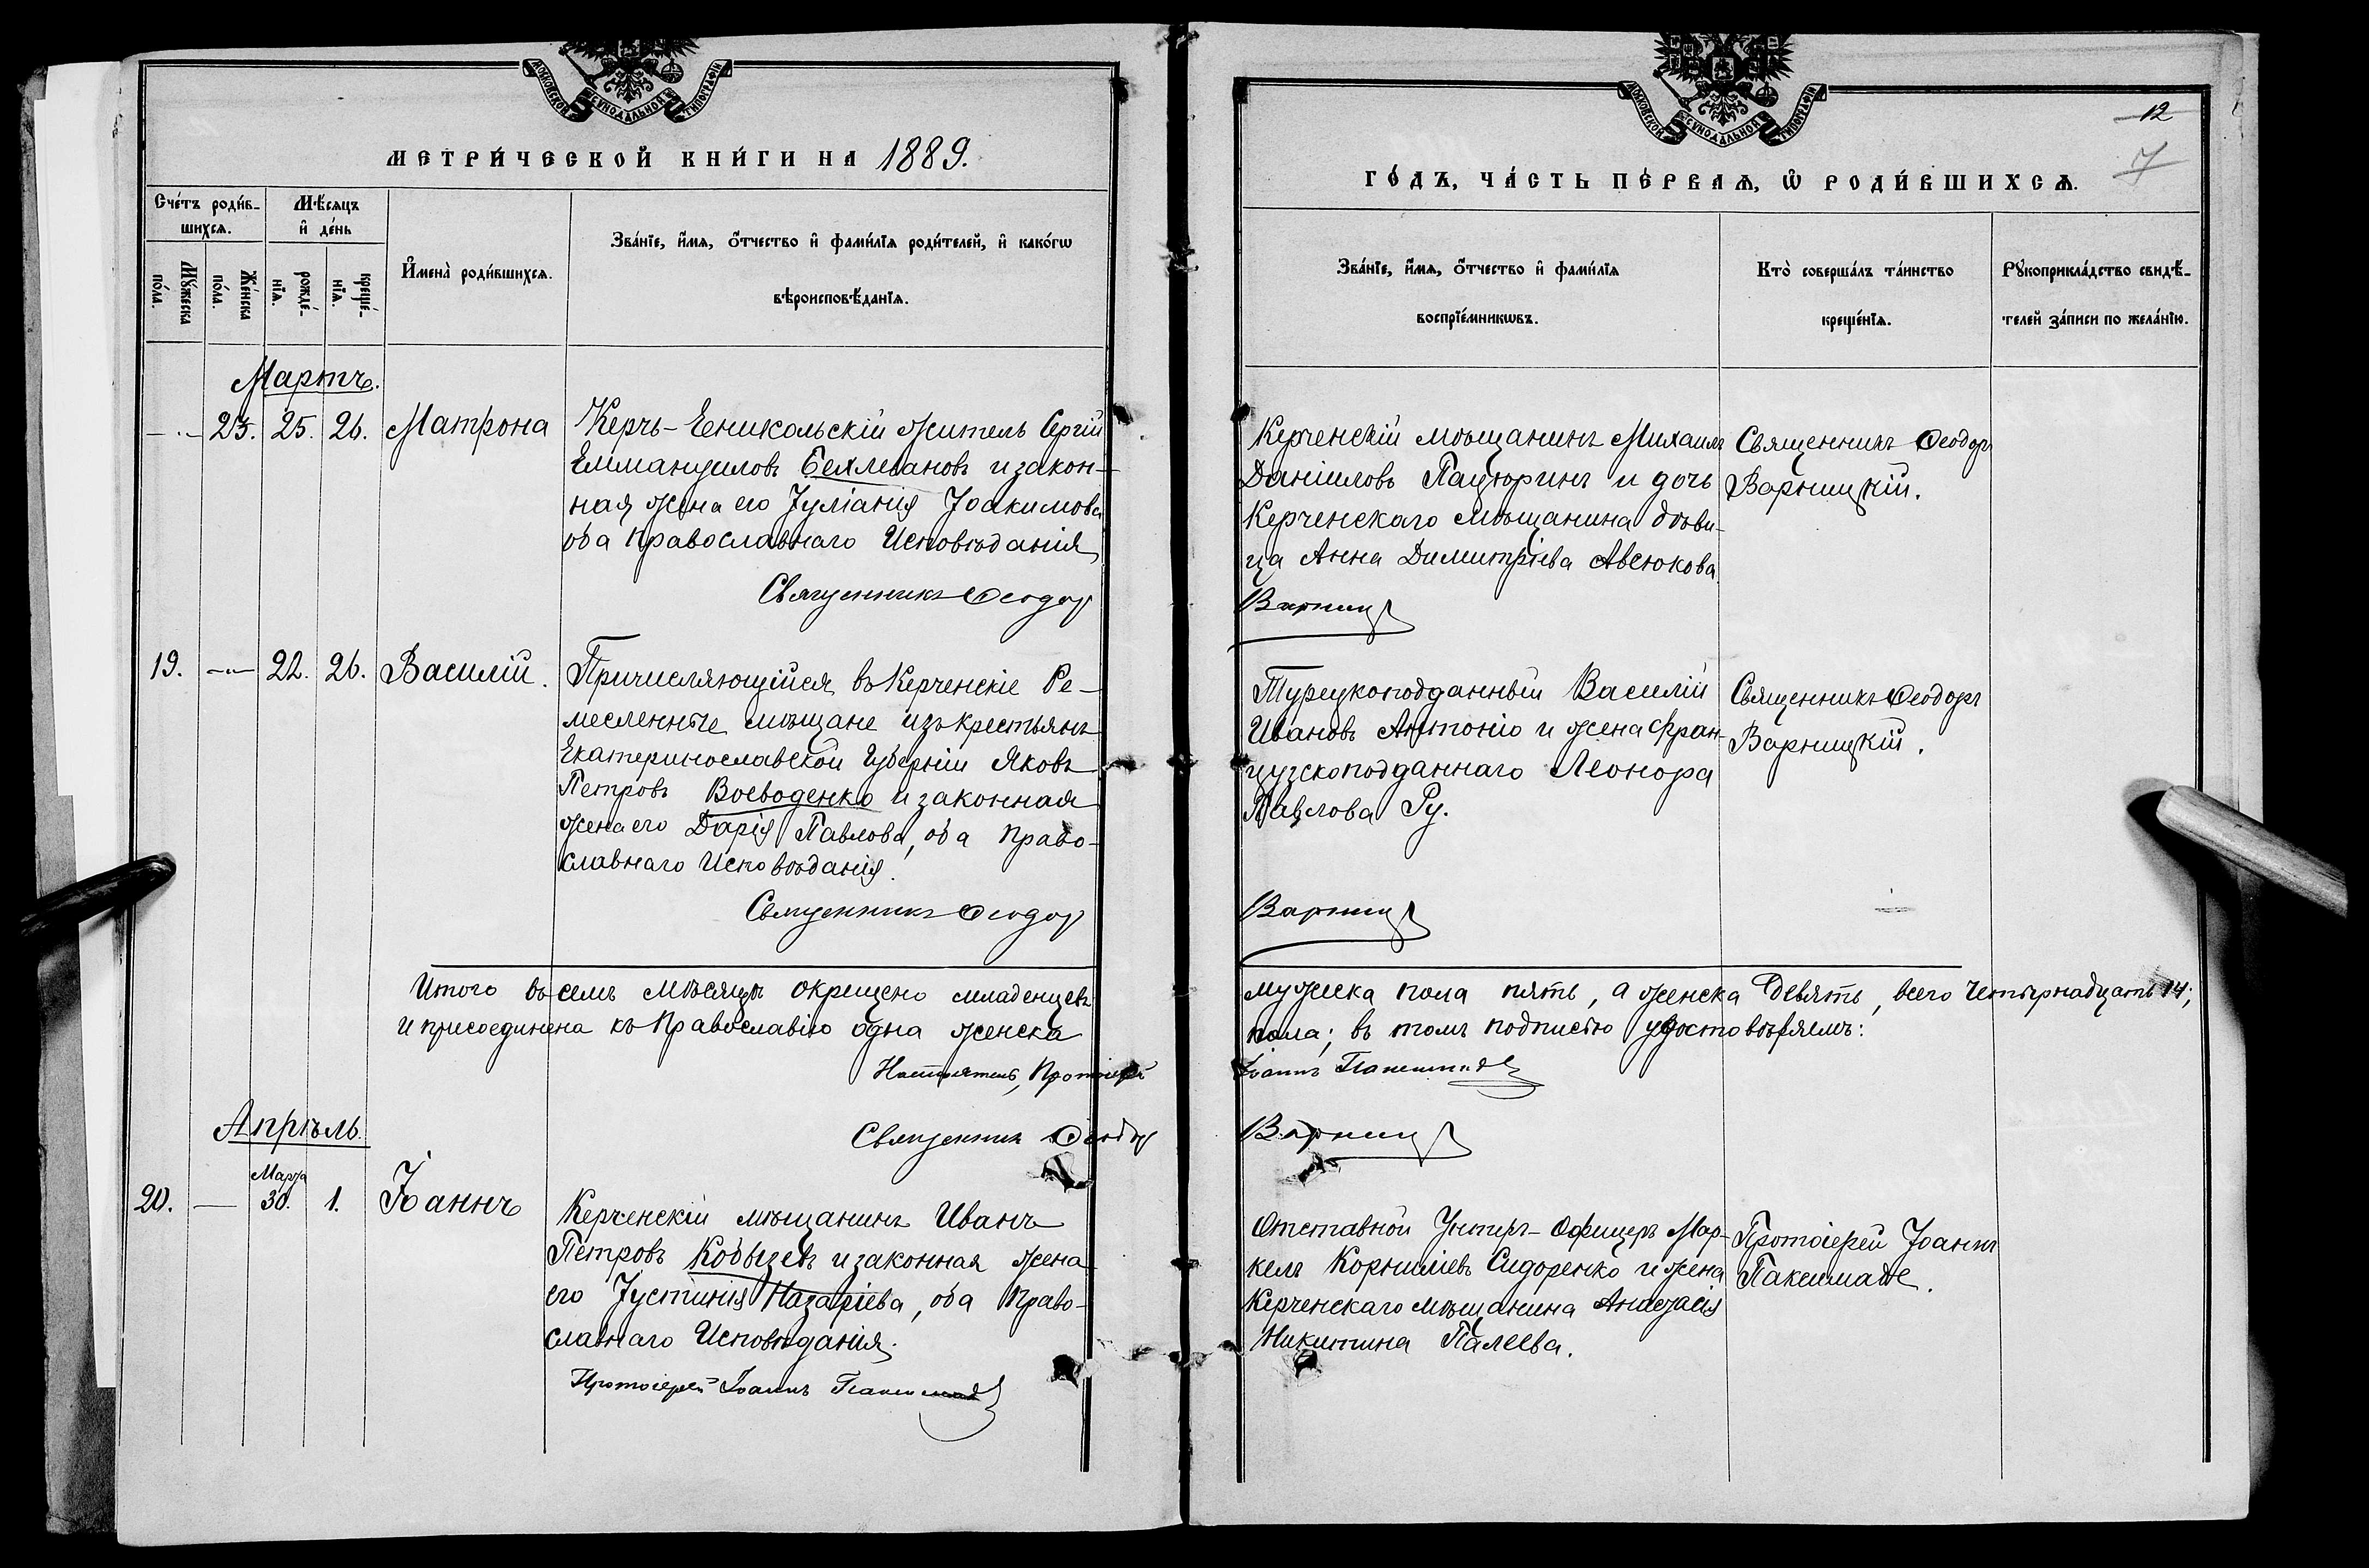 МОСКОВСКОЙ СѴНОДАЛЬНОЙ ТИПОГРАФІИ
МЕТРИ́ЧЕСКОЙ КНИ́ГИ НА 1889.
Счётъ роди́в-
шихсѧ.
Мѣ́сѧцъ
и҆ де́нь
И҆мена̀ роди́вшихсѧ.
Зва́нїе, и҆́мѧ, ѻ҆́тчество и҆ фами́лїѧ роди́телей, и҆ како́гѡ
вѣроисповѣ́данїѧ.
Мꙋ́жеска
по́ла.
Же́нска
по́ла.
рожде́-
нїѧ.
креще́-
нїѧ.
Мартъ.
23. 25. 26. Матрона
Керчь-Еникольскій житель Сергій
Еммануиловъ Бехлевановъ и закон-
ная жена его Іуліанія Іоакимова
оба Православнаго Исповѣданія
Священникъ Ѳеодор
19. 22. 26. Василій.
Причисляющійся въ Керченскіе Ре-
месленные мѣщане изъ крестьянъ
Екатеринославской Губерніи Яковъ
Петровъ Воеводенко и законная
жена его Дарія Павлова, оба Право-
славнаго Исповѣданія.
Священникъ Ѳеодор
Итого въ семъ мѣсяцѣ окрещено младенцевъ
и присоединена къ Православію одна женска
Настоятель, Протоіерей
Священник Ѳеодор
Апрѣль.
Марта
20. — 30. 1. Іоаннъ
Керченскій мѣщанинъ Иванъ
Петровъ Кобызевъ и законная жена
его Іустинія Назаріева, оба Право-
славнаго Исповѣданія.
Протоіерей Іоаннъ
МОСКОВСКОЙ СѴНОДАЛЬНОЙ ТИПОГРАФІИ
12
7
ГО́ДЪ, ЧА́СТЬ ПЕ́РВАѦ, Ѡ҆ РОДИ́ВШИХСѦ.
Зва́нїе, и҆́мѧ, ѻ҆́тчество и҆ фами́лїѧ
воспрїе́мникѡвъ.
Кто̀ соверша́лъ та́инство
креще́нїѧ.
Рꙋкоприкла́дство свидѣ́-
телей за́писи по жела́нїю.
Керченскій мѣщанинъ Михаилъ
Даніиловъ Пацюринъ и дочь
Керченскаго мѣщанина дѣви-
ца Анна Димитріева Авсюкова
Варниц
Священникъ Ѳеодоръ
Варницкій.
Турецкоподданный Василій
Ивановъ Антоніо и жена Фран-
цузскоподданнаго Леонора
Павлова Ру.
Варниц
Священникъ Ѳеодоръ
Варницкій.
мужеска пола пять, а женска девять, всего четырнадцать 14;
пола; въ томъ подписью удостовѣряемъ:
Іоаннъ
Варниц
Отставной Унтеръ-Офицеръ Мар-
келъ Корниліевъ Сидоренко и жена
Керченскаго мѣщанина Анастасія
Никитина Палеева.
Протоіерей Іоаннъ
Паксимаде.